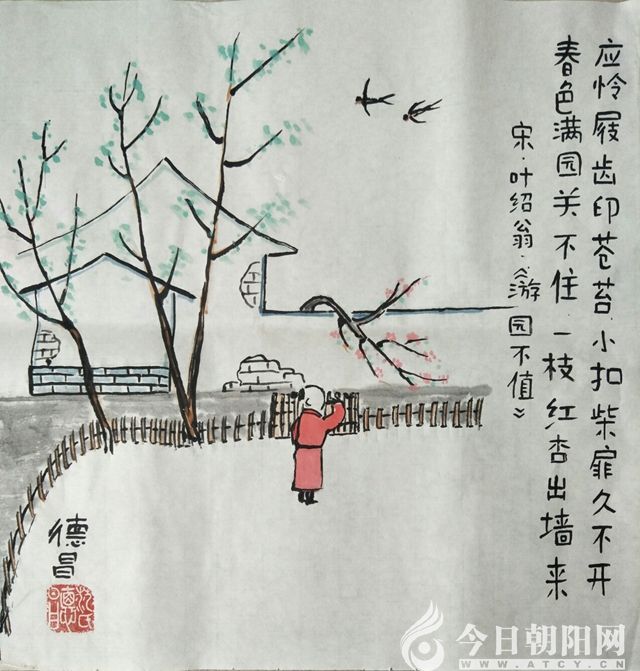 应怜屐齿印苍苔小扣柴扉久不开
春色满园关不住一枝红杏出墙来
宋·叶绍翁·《游园不值》
德昌
今日朝阳网
WWW.ATCY.CN